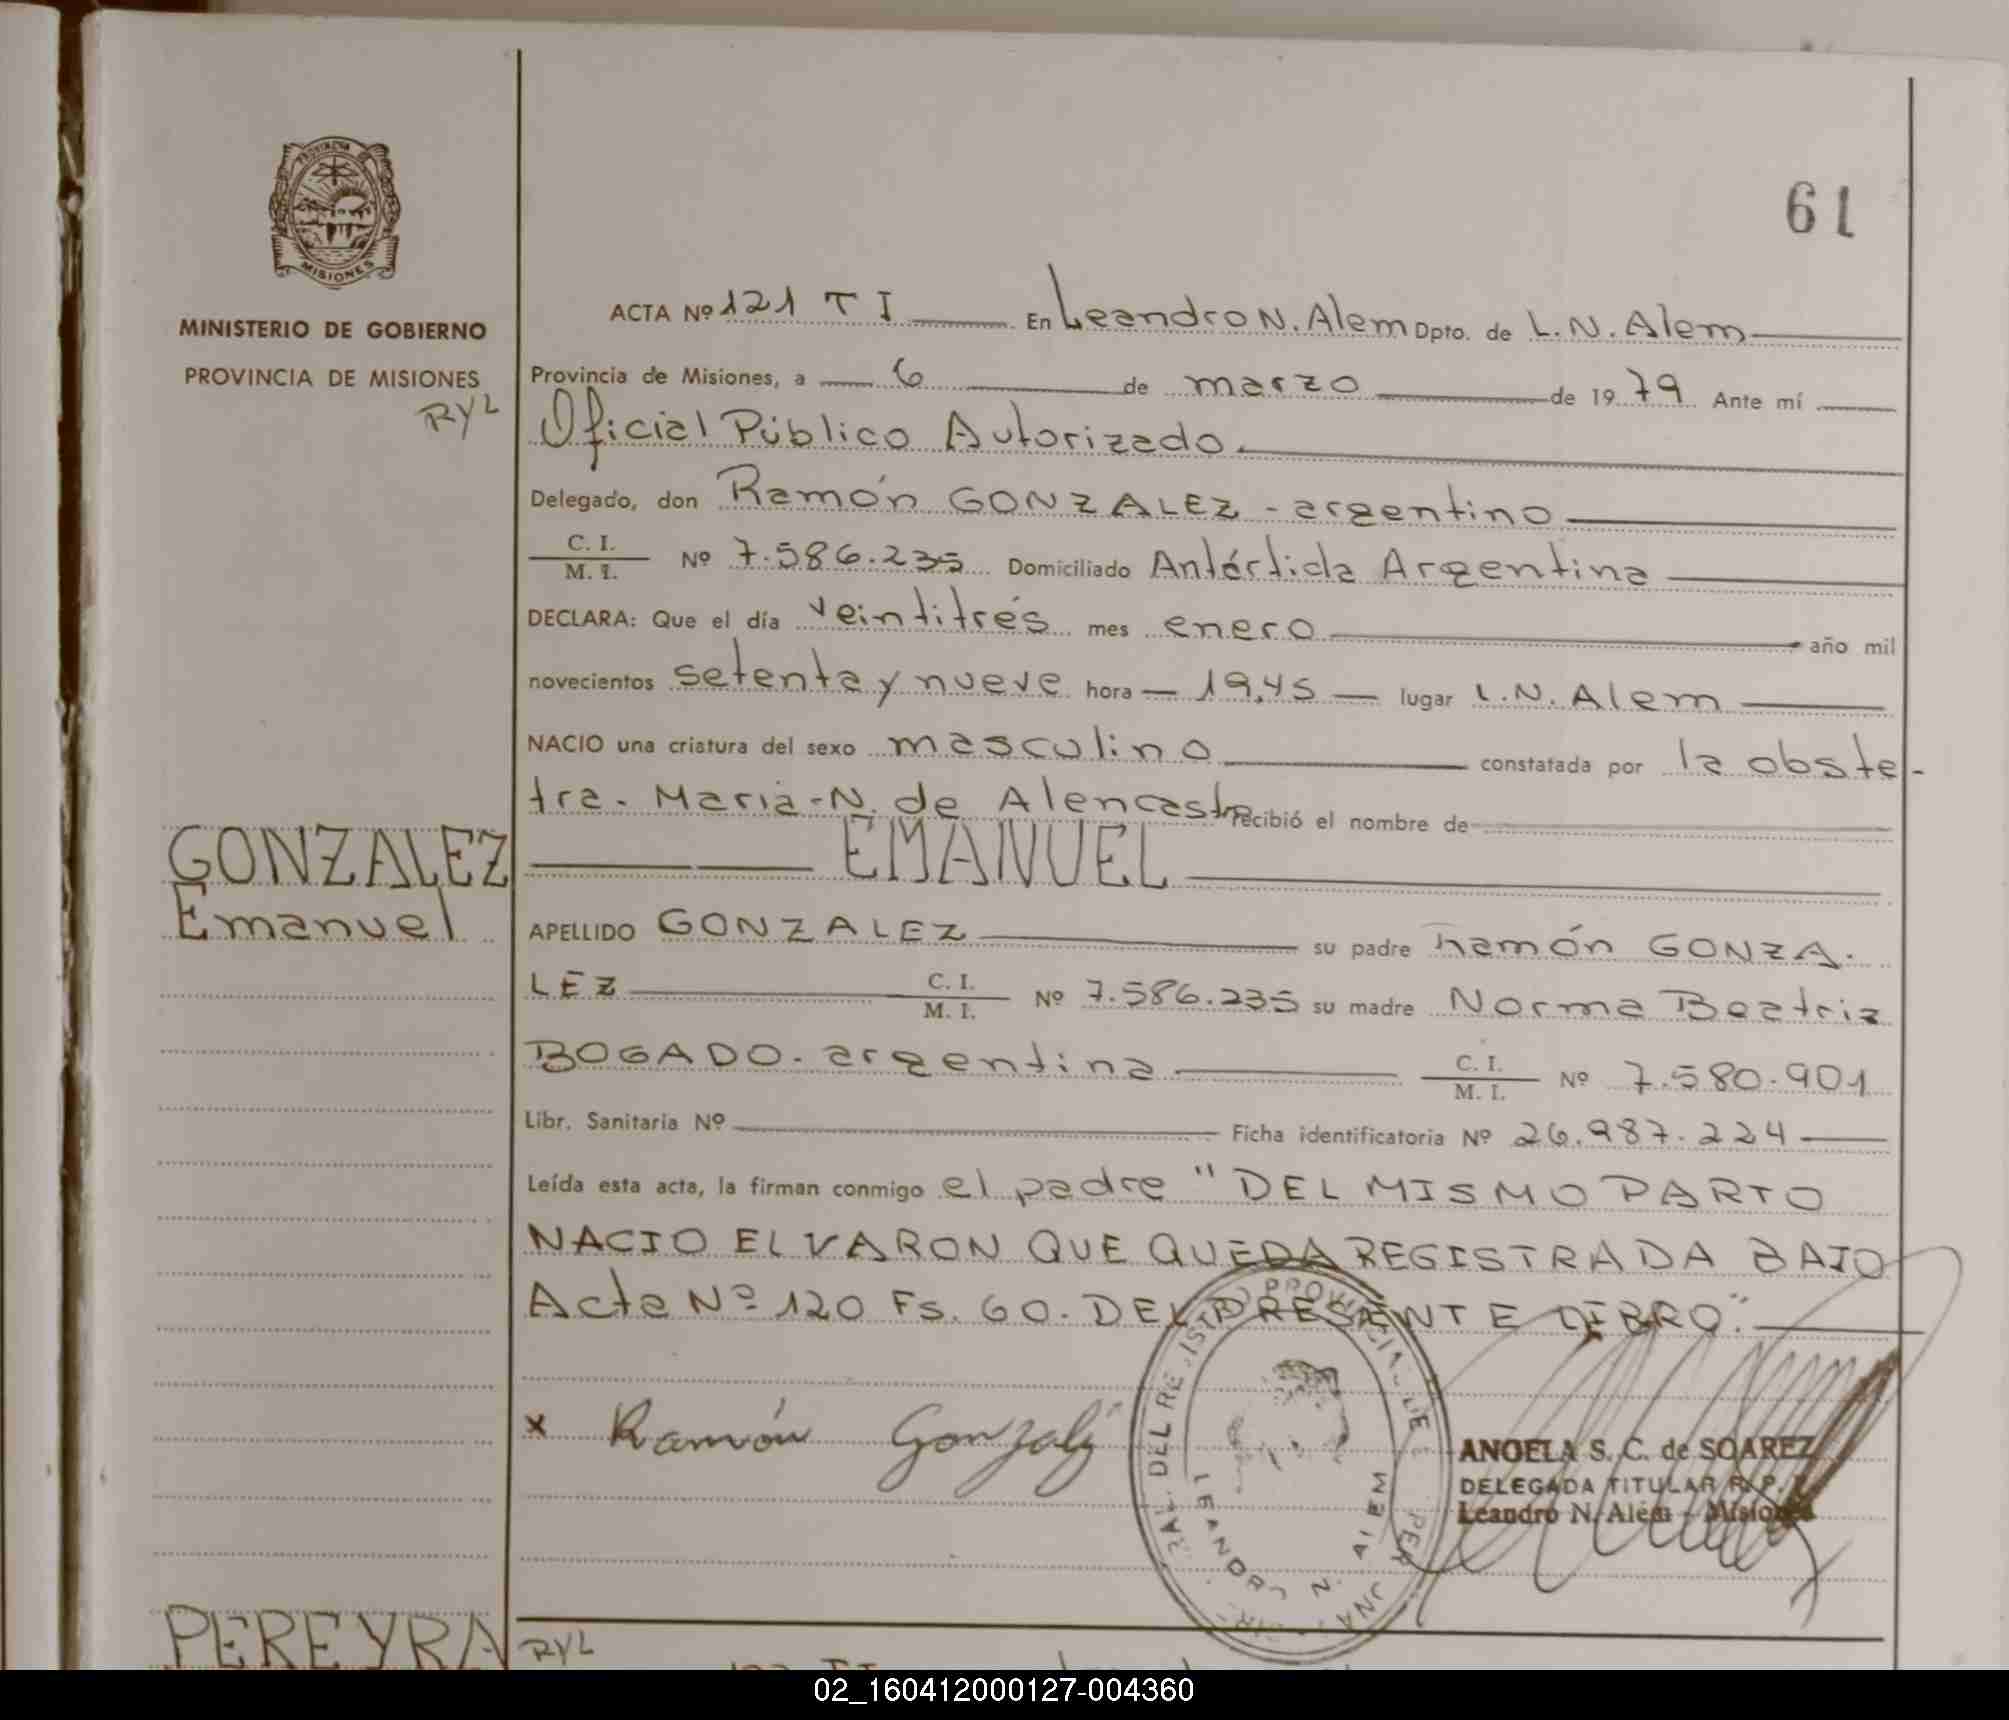 PROVINCIA DE
MISIONES
MINISTERIO DE GOBIERNO
PROVINCIA DE MISIONES
RYL
61
ACTA Nº 121 T I En Leandro N. Alem Dpto. de L.N. Alem
Provincia de Misiones, a 6 de marzo de 1979 Ante mí
Oficial Público Autorizado
Delegado, don Ramón GONZALEZ - argentino
C. I.
M. I. Nº 7.586.235 Domiciliado Antártida Argentina
DECLARA: Que el día veintitrés mes enero año mil
novecientos setenta y nueve hora 19,45 lugar L.N. Alem
NACIO una criatura del sexo masculino constatada por la obste-
tra. Maria-N. de Alencastre recibió el nombre de
EMANUEL
GONZALEZ
Emanuel
APELLIDO GONZALEZ su padre Ramón GONZA-
LEZ C. I.
M. I. Nº 7.586.235 su madre Norma Beatriz
BOGADO. argentina C. I.
M. I. Nº 7.580.901
Libr. Sanitaria Nº Ficha identificatoria Nº 26.987.224
Leída esta acta, la firman conmigo el padre "DEL MISMO PARTO
NACIO EL VARON QUE QUEDA REGISTRADA BAJO
Acta Nº 120 Fs. 60. DEL PRESENTE LIBRO".
x Ramón Gonzalez
LEANDRO N. ALEM
ANGELA S. C. de SOAREZ
DELEGADA TITULAR R. P.
Leandro N. Alem - Misiones
PEREYRA
RYL
02_160412000127-004360